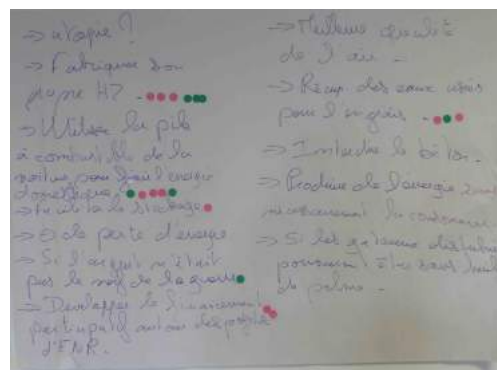 → utopie ?
→ Fabriquer son
propre H2 -
→ Utiliser la pile
à combustible de la
voiture pour l'énergie
domestique
→ la stockage
→ 0 de perte d'énergie
→ Si l'argent n'était
pas le nerf de la guerre
→ Développer le financement
participatif autour des projets
d'ENR.
→ Meilleure qualité
de l'air -
→ Récup. des eaux usées
pour l'engrais -
→ Interdire le béton -
→ Produire de l'énergie
la
→ Si les
pouvaient être sans huile
de palme -